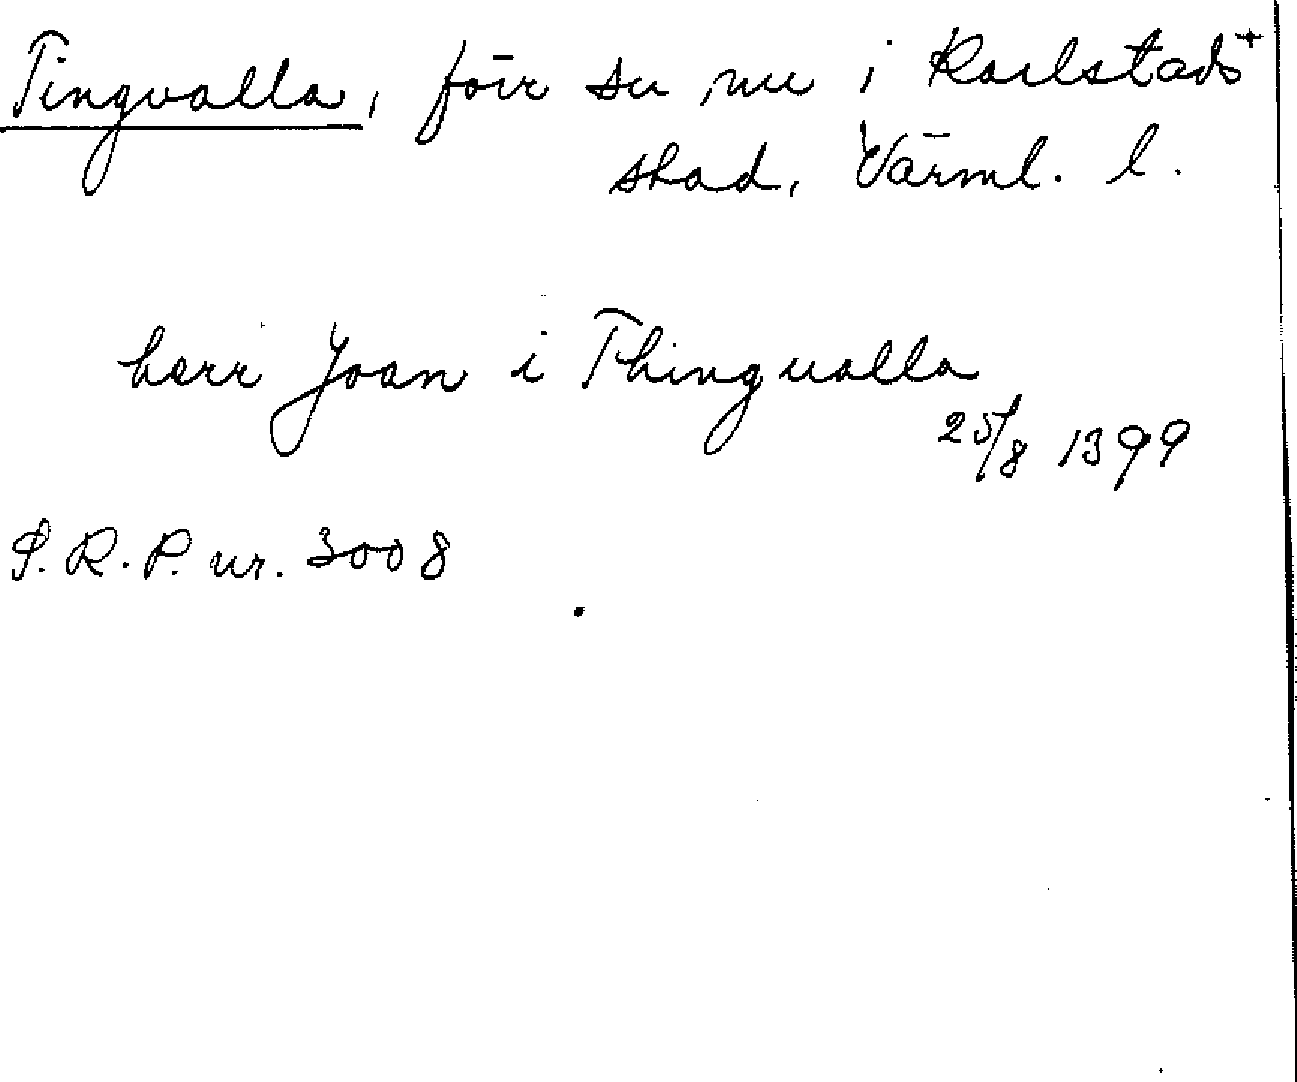 Tingvalla, förr sn nu i Karlstads+
stad, Värml. l.
herr Joan i Thingualla
25/8 1399
S.R.P. nr. 3008